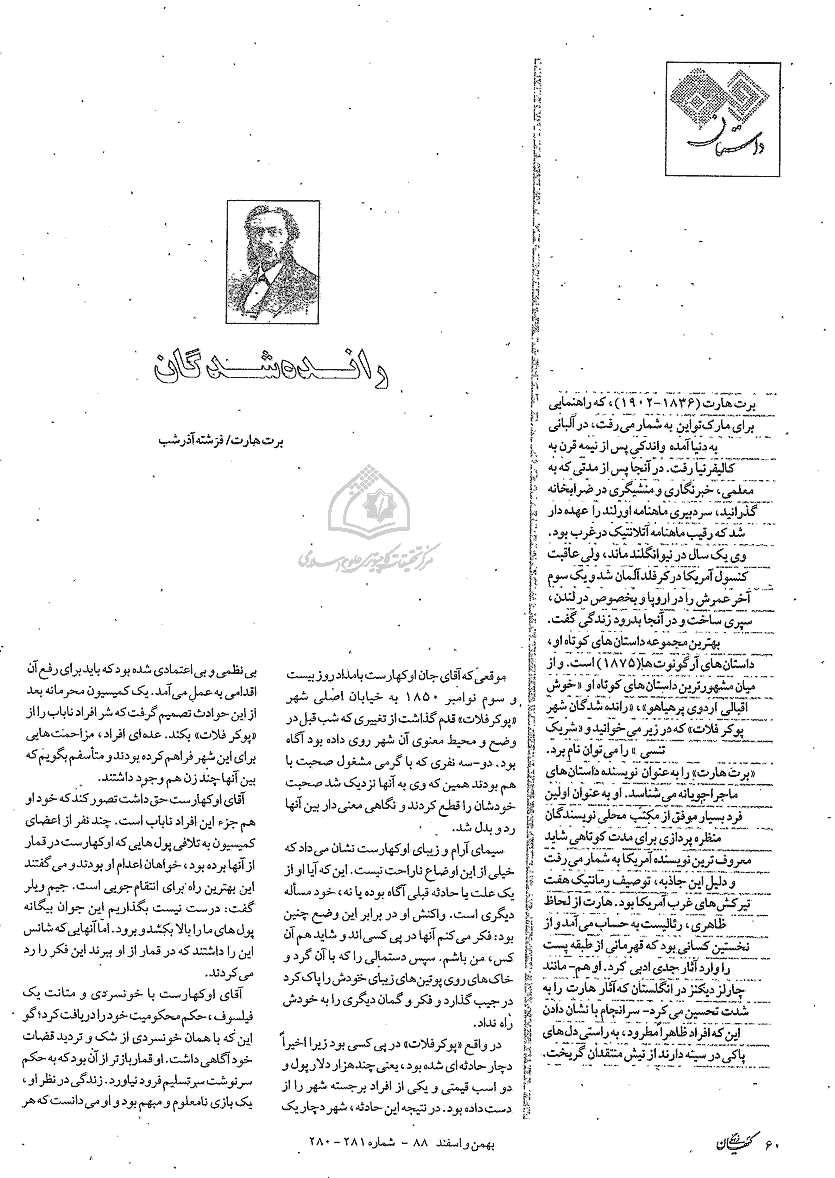 داستان
رانده‌شدگان
برت هارت/ فرشته آذرشب
مرکز تحقیقات کامپیوتری علوم اسلامی
برت هارت (۱۸۳۶-۱۹۰۲)، که راهنمایی
برای مارک تواین به شمار می‌رفت، در آلبانی
به دنیا آمده واندکی پس از نیمه قرن به
کالیفرنیا رفت. در آنجا پس از مدتی که به
معلمی، خبرنگاری و منشیگری در ضرابخانه
گذرانید، سردبیری ماهنامه اورلند را عهده دار
شد که رقیب ماهنامه آتلانتیک در غرب بود.
وی یک سال در نیوانگلند ماند، ولی عاقبت
کنسول آمریکا در کرفلد آلمان شد و یک سوم
آخر عمرش را در اروپا و بخصوص در لندن،
سپری ساخت و در آنجا بدرود زندگی گفت.
بهترین مجموعه داستان‌های کوتاه او،
داستان‌های آرگونوت‌ها(۱۸۷۵) است. و از
میان مشهورترین داستان‌های کوتاه او «خوش
اقبالی اردوی پرهیاهو»، «رانده شدگان شهر
پوکر فلات» که در زیر می‌خوانید و «شریک
تنسی» را می‌توان نام برد.
«برت هارت» را به عنوان نویسنده داستان‌های
ماجراجویانه می‌شناسد. او به عنوان اولین
فرد بسیار موفق از مکتب محلی نویسندگان
منظره پردازی برای مدت کوتاهی شاید
معروف ترین نویسنده آمریکا به شمار می‌رفت
و دلیل این جاذبه، توصیف رمانتیک هفت
تیرکش‌های غرب آمریکا بود. هارت از لحاظ
ظاهری، رئالیست به حساب می‌آمد و از
نخستین کسانی بود که قهرمانی از طبقه پست
را وارد آثار جدی ادبی کرد. او هم- مانند
چارلز دیکنز در انگلستان که آثار هارت را به
شدت تحسین می‌کرد- سرانجام با نشان دادن
این که افراد ظاهراً مطرود، به راستی دل‌های
پاکی در سینه دارند از نیش منتقدان گریخت.
موقعی که آقای جان اوکهارست بامداد روز بیست
و سوم نوامبر ۱۸۵۰ به خیابان اصلی شهر
«پوکرفلات» قدم گذاشت از تغییری که شب قبل در
وضع و محیط معنوی آن شهر روی داده بود آگاه
بود. دو-سه نفری که با گرمی مشغول صحبت با
هم بودند همین که وی به آنها نزدیک شد صحبت
خودشان را قطع کردند و نگاهی معنی‌دار بین آنها
رد و بدل شد.
سیمای آرام و زیبای اوکهارست نشان می‌داد که
خیلی از این اوضاع ناراحت نیست. این که آیا او از
یک علت یا حادثه قبلی آگاه بوده یا نه، خود مسأله
دیگری است. واکنش او در برابر این وضع چنین
بود: فکر می‌کنم آنها در پی کسی‌اند و شاید هم آن
کس، من باشم. سپس دستمالی را که با آن گرد و
خاک‌های روی پوتین‌های زیبای خودش را پاک کرد
در جیب گذارد و فکر و گمان دیگری را به خودش
راه نداد.
در واقع «پوکرفلات» در پی کسی بود زیرا اخیراً
دچار حادثه‌ای شده بود، یعنی چند هزار دلار پول و
دو اسب قیمتی و یکی از افراد برجسته شهر را از
دست داده بود. در نتیجه این حادثه، شهر دچار یک
بی نظمی و بی اعتمادی شده بود که باید برای رفع آن
اقدامی به عمل می‌آمد. یک کمیسیون محرمانه بعد
از این حوادث تصمیم گرفت که شر افراد ناباب را از
«پوکر فلات» بکند. عده‌ای افراد، مزاحمت‌هایی
برای این شهر فراهم کرده بودند و متأسفم بگویم که
بین آنها چند زن هم وجود داشتند.
آقای اوکهارست حق داشت تصور کند که خود او
هم جزء این افراد ناباب است. چند نفر از اعضای
کمیسیون به تلافی پول‌هایی که اوکهارست در قمار
از آنها برده بود، خواهان اعدام او بودند و می‌گفتند
این بهترین راه برای انتقام جویی است. جیم ویلر
گفت: درست نیست بگذاریم این جوان بیگانه
پول‌های ما را بالا بکشد و برود. اما آنهایی که شانس
این را داشتند که در قمار از او ببرند این فکر را رد
می‌کردند.
آقای اوکهارست با خونسردی و متانت یک
فیلسوف، حکم محکومیت خود را دریافت کرد؛ گو
این که با همان خونسردی از شک و تردید قضات
خود آگاهی داشت. او قماربازتر از آن بود که به حکم
سرنوشت سر تسلیم فرود نیاورد. زندگی در نظر او،
یک بازی نامعلوم و مبهم بود و او می‌دانست که هر
۶۰ کیهان فرهنگی
بهمن و اسفند ۸۸ - شماره ۲۸۱-۲۸۰